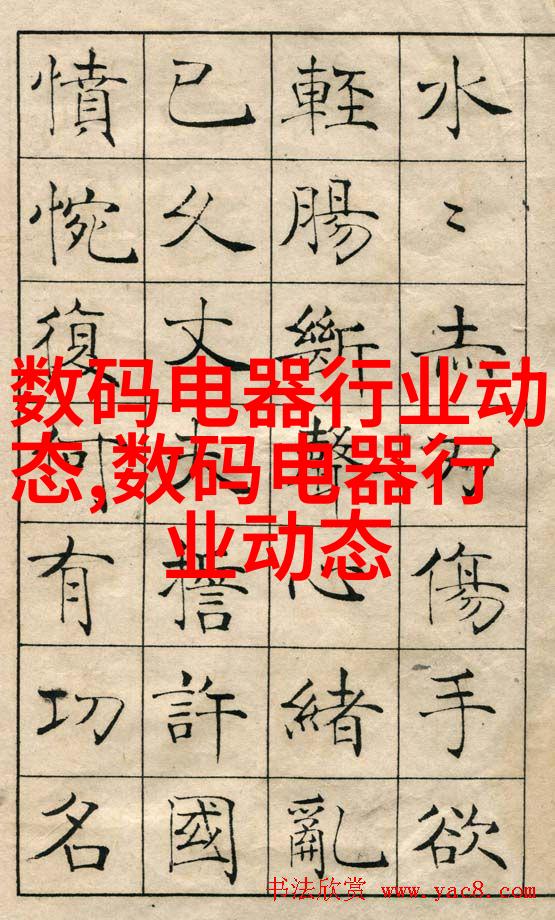 水〻赤刃傷手欲
輕腸斷聲心緒亂
已久丈夫誓許國
憤惋復何有功名
数码电器行业动
态,数码电器行
业动态
书法欣赏 www.yac8.com